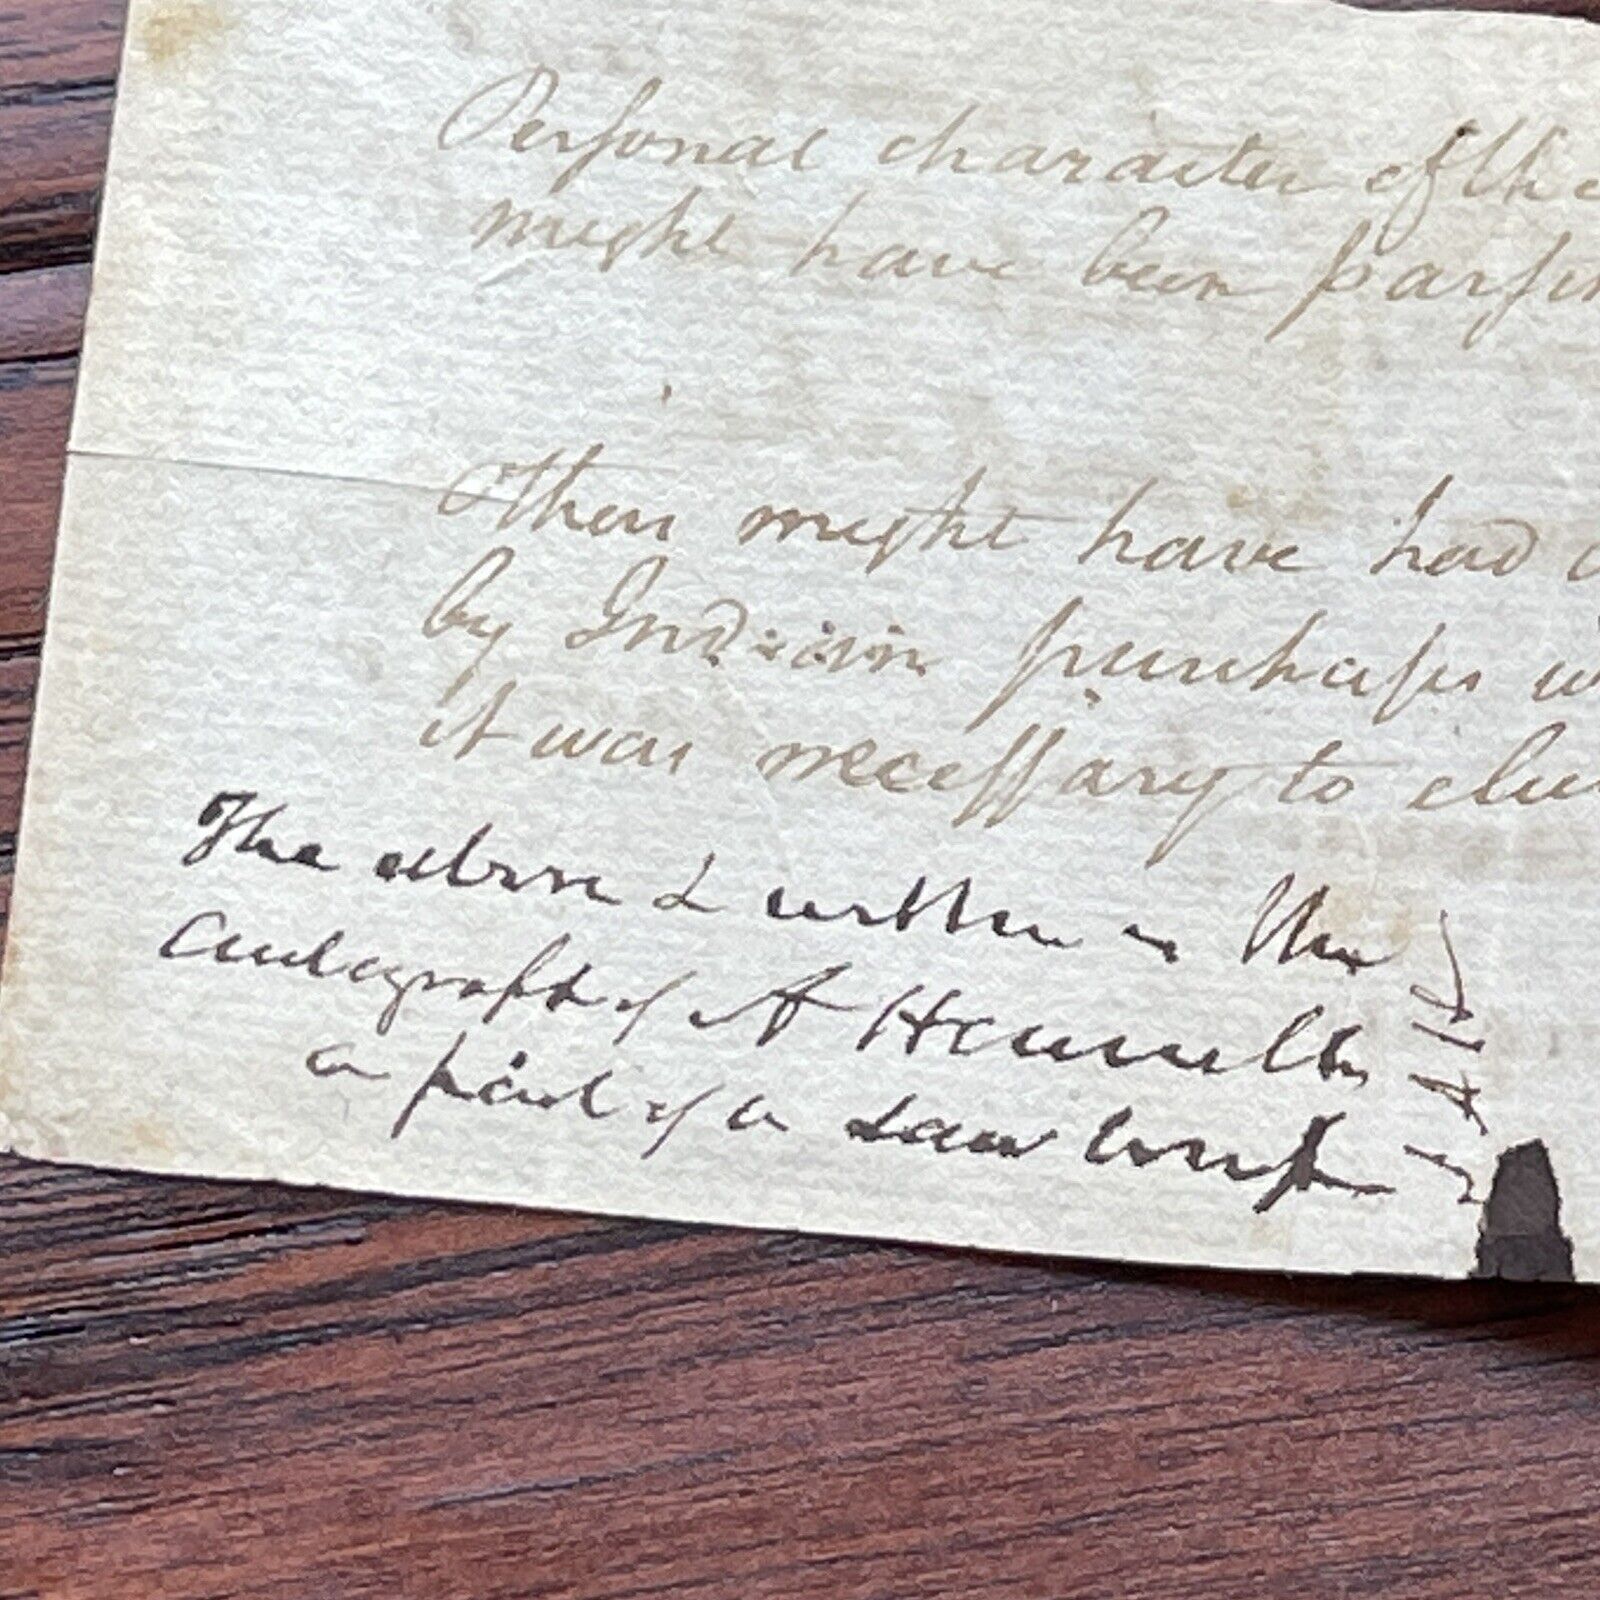 Personal character of the
might have been
They might have had
by Indian purchases
it was necessary to
The above & written is the
Autograph of A Hamilton
a part of a Law